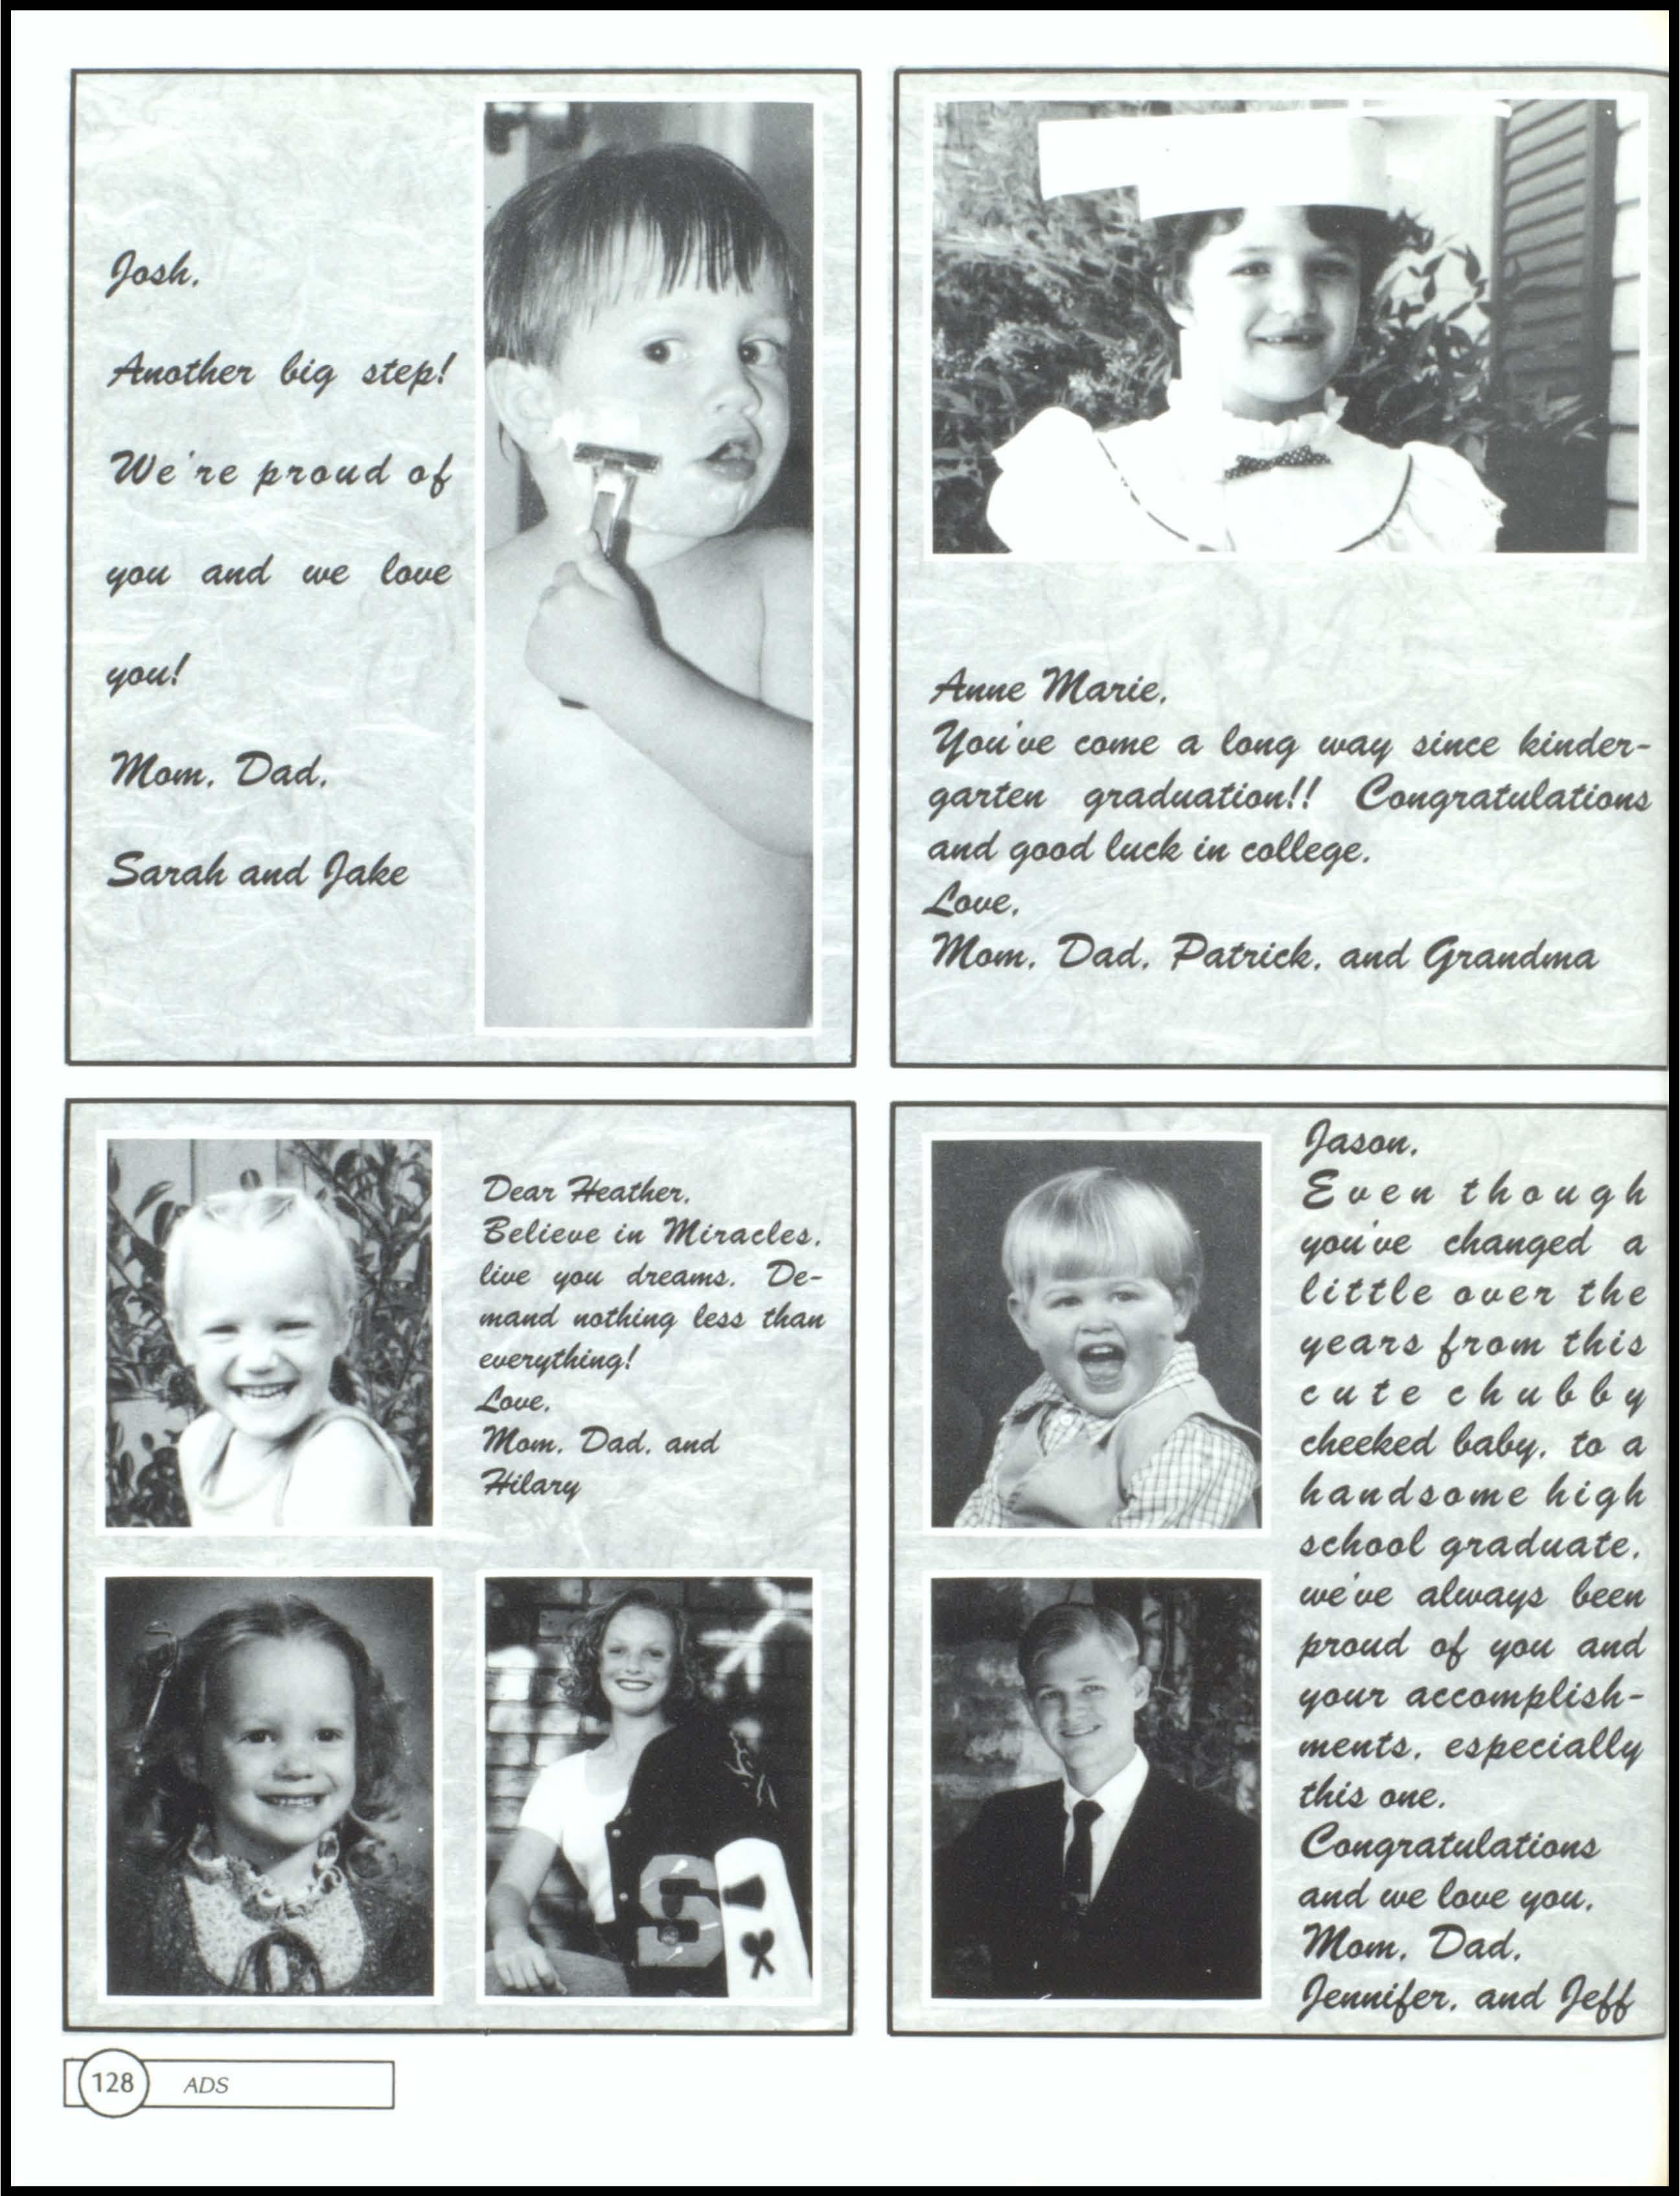 Josh,
Another big step!
We're proud of
you and we love
you!
Mom, Dad,
Sarah and Jake
Anne Marie,
You've come a long way since kinder-
garten graduation!! Congratulations
and good luck in college.
Love,
Mom, Dad, Patrick, and Grandma
Dear Heather,
Believe in Miracles,
live you dreams. De-
mand nothing less than
everything!
Love,
Mom, Dad, and
Hilary
Jason,
Even though
you've changed a
little over the
years from this
cute chubby
cheeked baby, to a
handsome high
school graduate,
we've always been
proud of you and
your accomplish-
ments, especially
this one.
Congratulations
and we love you,
Mom, Dad,
Jennifer, and Jeff
S
128 ADS